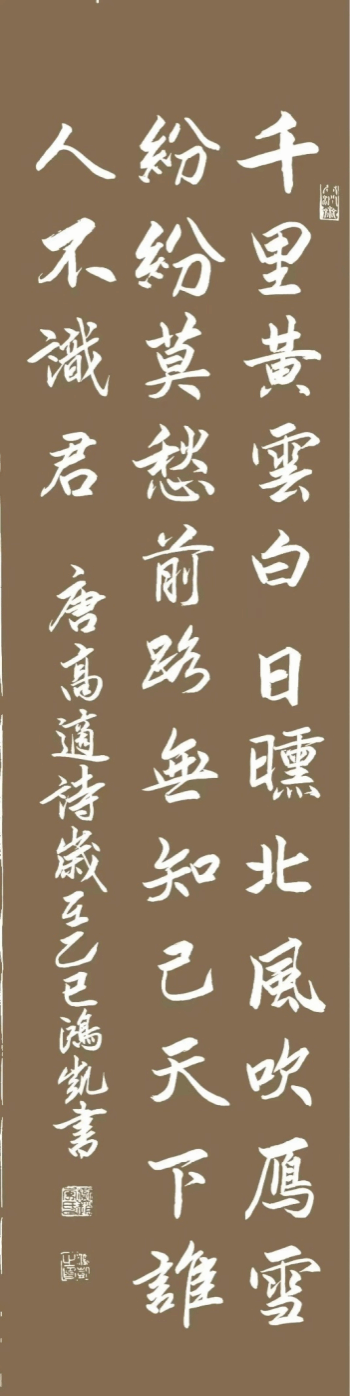 千里黃雲白日曛北風吹鴈雪
紛紛莫愁前路無知己天下誰
人不識君
唐高適詩歲在乙巳鴻凱書